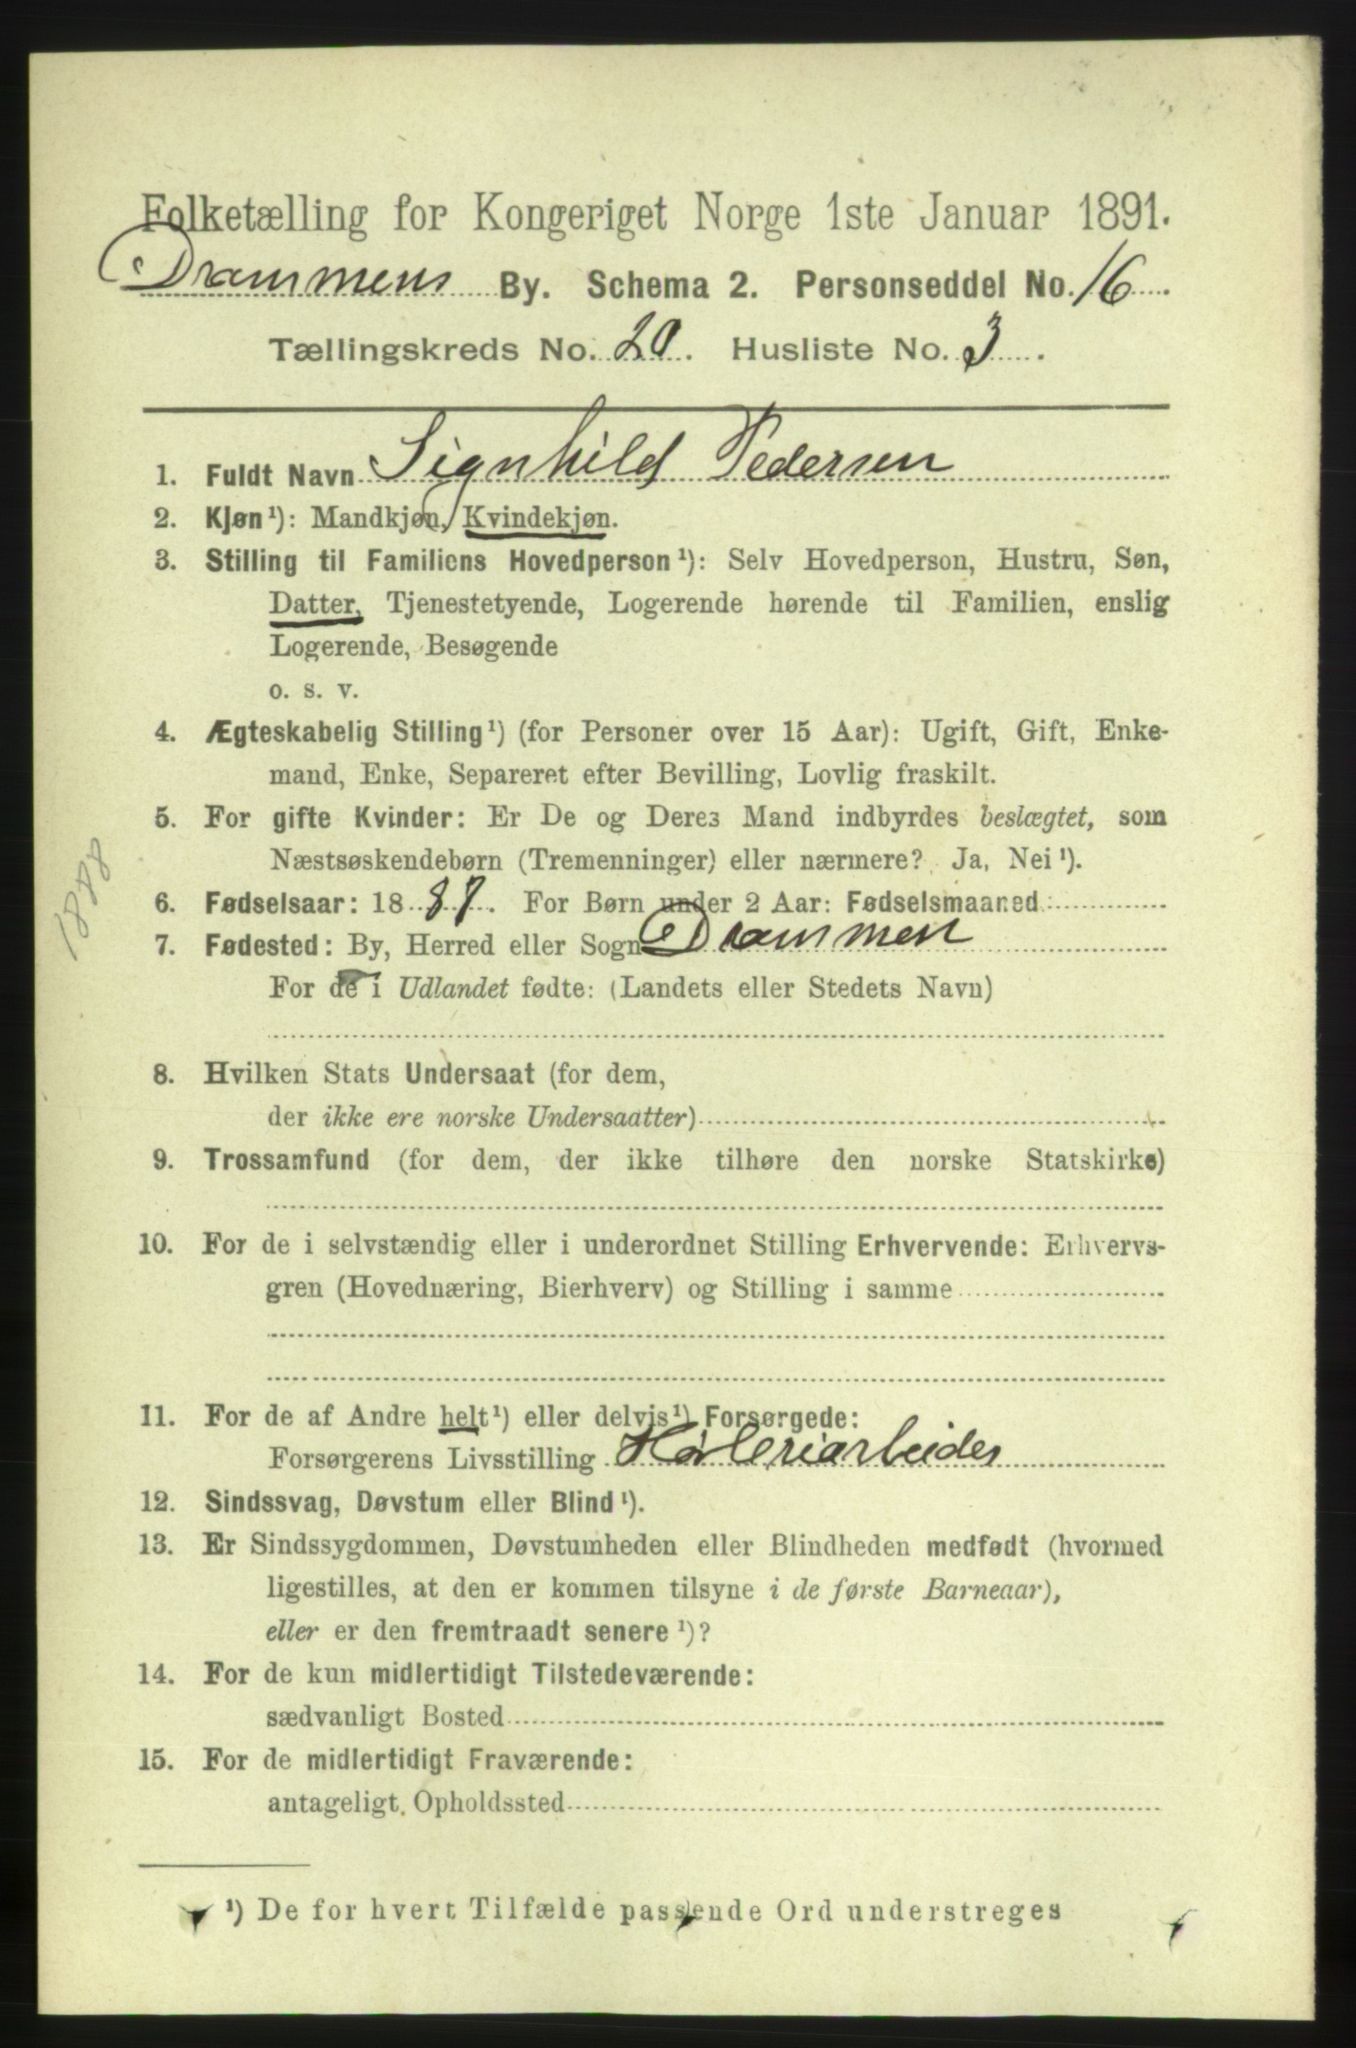 Folketælling for Kongeriget Norge 1ste Januar 1891.
Drammens By. Schema 2. Personseddel No. 16.
Tællingskreds No. 20. Husliste No. 3.
1. Fuldt Navn Signhild Pedersen
2. Kjøn¹): Mandkjøn, Kvindekjøn.
3. Stilling til Familiens Hovedperson¹): Selv Hovedperson, Hustru, Søn,
Datter, Tjenestetyende, Logerende hørende til Familien, enslig
Logerende, Besøgende
o. s. v.
4. Ægteskabelig Stilling¹) (for Personer over 15 Aar): Ugift, Gift, Enke-
mand, Enke, Separeret efter Bevilling, Lovlig fraskilt.
5. For gifte Kvinder: Er De og Deres Mand indbyrdes beslægtet, som
Næstsøskendebørn (Tremenninger) eller nærmere? Ja, Nei¹).
1888
6. Fødselsaar: 1887. For Børn under 2 Aar: Fødselsmaaned:
7. Fødested: By, Herred eller Sogn Drammen
For de i Udlandet fødte: (Landets eller Stedets Navn)
8. Hvilken Stats Undersaat (for dem,
der ikke ere norske Undersaatter)
9. Trossamfund (for dem, der ikke tilhøre den norske Statskirke)
10. For de i selvstændig eller i underordnet Stilling Erhvervende: Erhvervs-
gren (Hovednæring, Bierhverv) og Stilling i samme
11. For de af Andre helt¹) eller delvis¹) Forsørgede:
Forsørgerens Livsstilling Høvleriarbeider
12. Sindssvag, Døvstum eller Blind¹).
13. Er Sindssygdommen, Døvstumheden eller Blindheden medfødt (hvormed
ligestilles, at den er kommen tilsyne i de første Barneaar),
eller er den fremtraadt senere¹)?
14. For de kun midlertidigt Tilstedeværende:
sædvanligt Bosted
15. For de midlertidigt Fraværende:
antageligt Opholdssted
¹) De for hvert Tilfælde passende Ord understreges